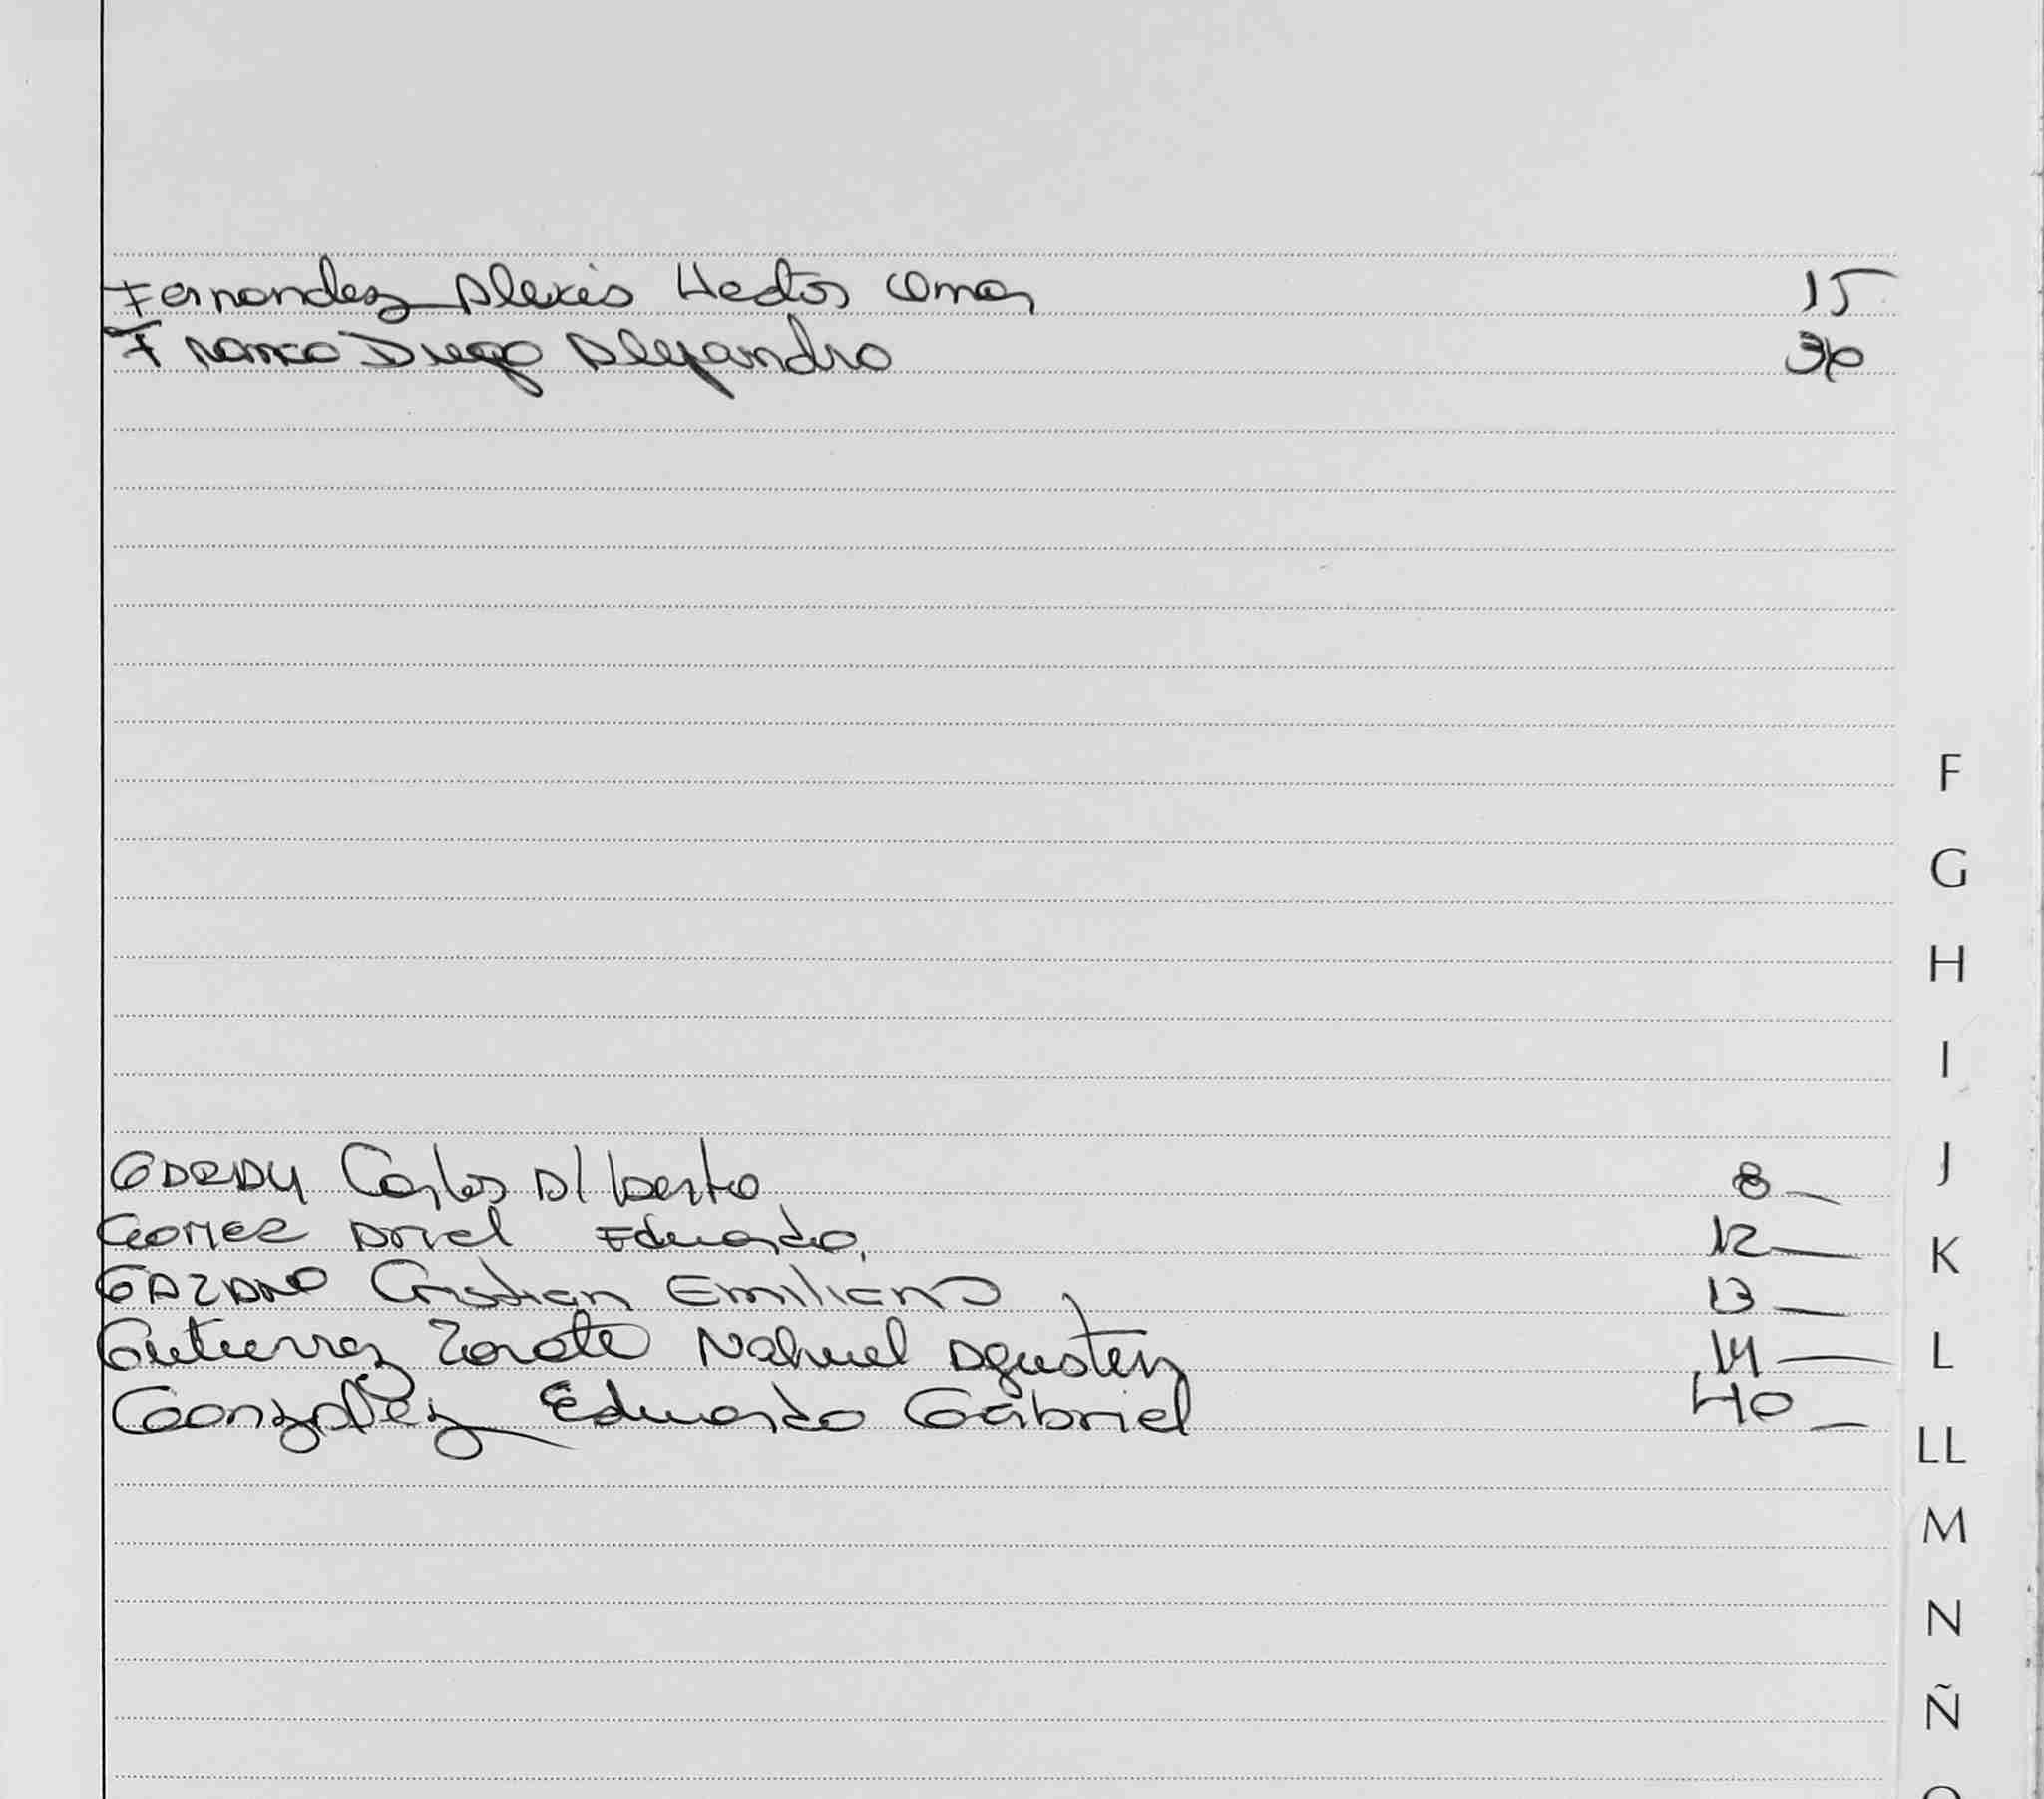 Fernandez Alexis Hector Omar 15
Franco Diego Alejandro 30
GARAY Carlos Alberto 8
GOMEZ Ariel Eduardo 12
GAZANO Cristian Emiliano 13
Gutierrez Zarate Nahuel Agustin 14
Gonzalez Eduardo Gabriel 40
F
G
H
I
J
K
L
LL
M
N
Ñ